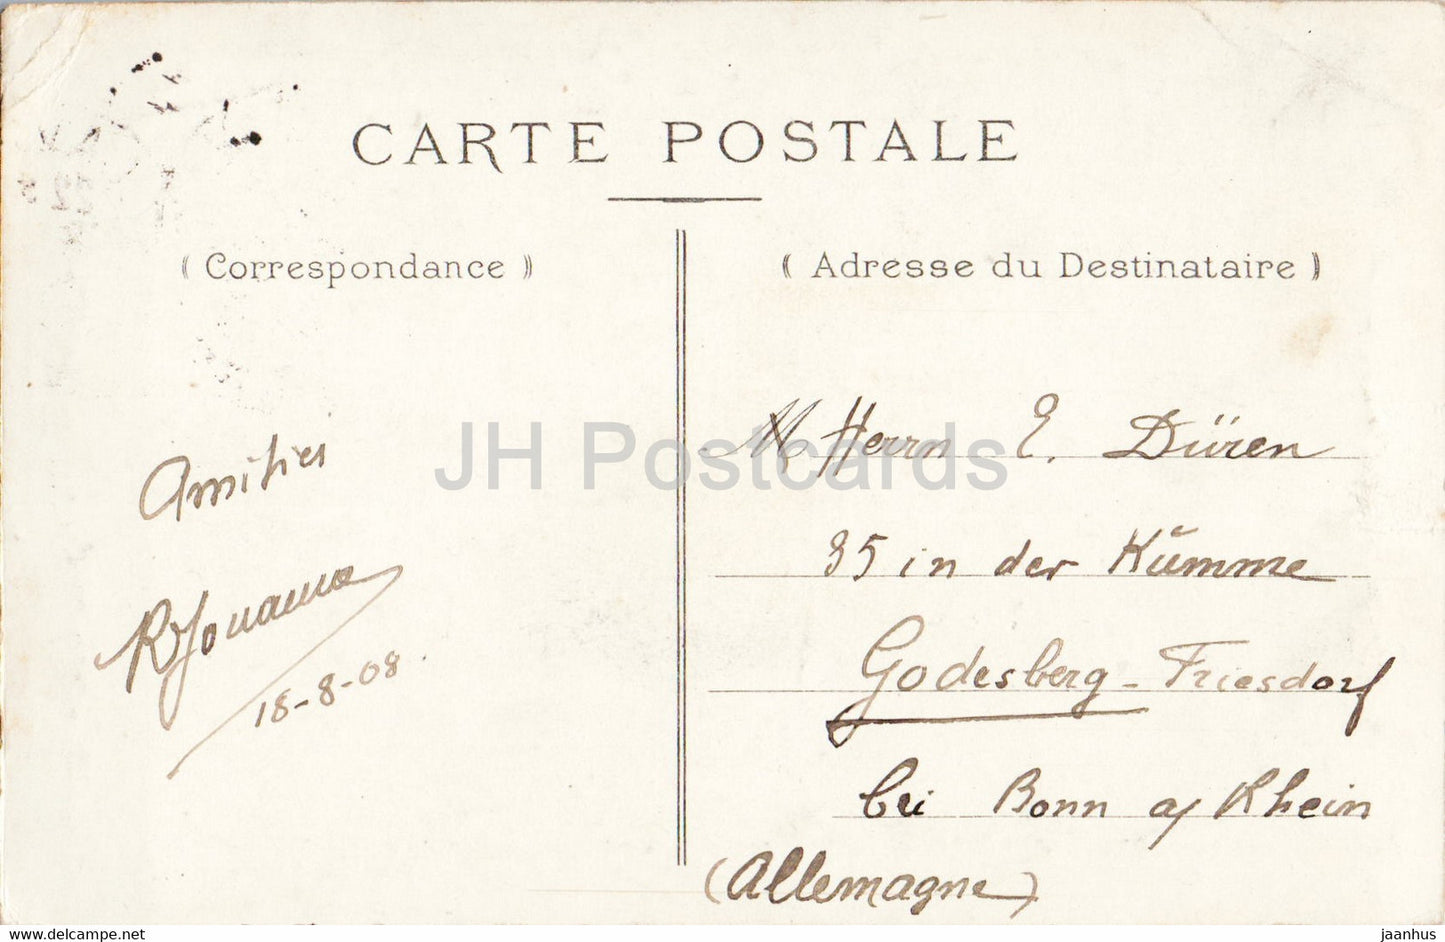 CARTE POSTALE
( Correspondance )
( Adresse du Destinataire )
Amitiés
18-8-08
M Herrn E. Düren
35 in der Kümme
Godesberg - Friesdorf
bei Bonn a/ Rhein
(Allemagne)
JH Postcards
www.delcampe.net
jaanhus